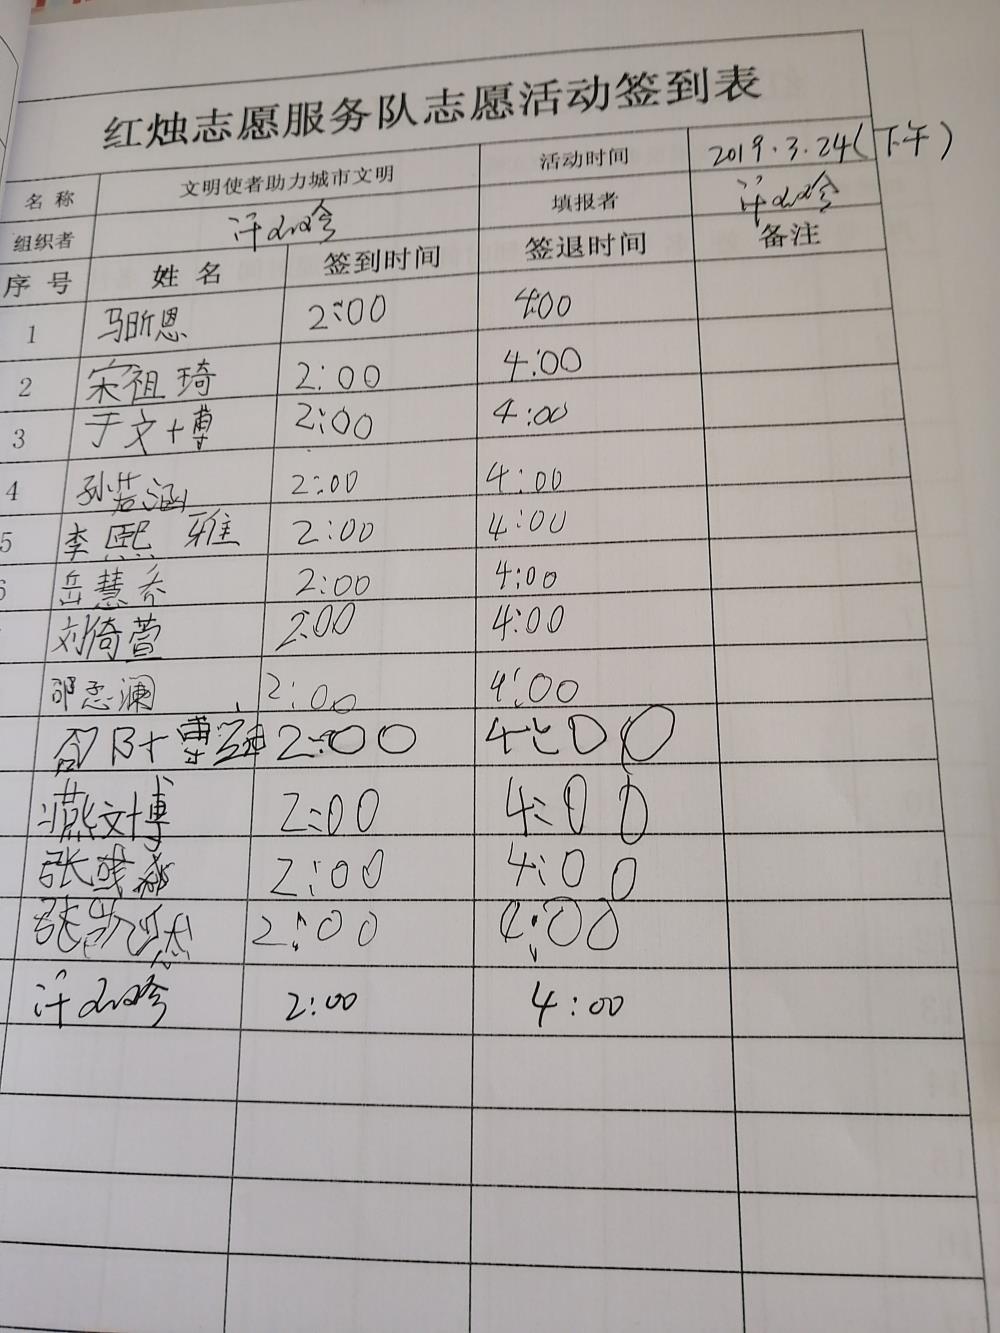 红烛志愿服务队志愿活动签到表
名称 文明使者助力城市文明 活动时间 2019.3.24(下午)
组织者 填报者
序号 姓名 签到时间 签退时间 备注
1 马昕恩 2:00 4:00
2 宋祖琦 2:00 4:00
3 于文博 2:00 4:00
4 孙若涵 2:00 4:00
5 李熙雅 2:00 4:00
岳慧乔 2:00 4:00
刘倚萱 2:00 4:00
邵思澜 2:00 4:00
2:00 4:00
燕文博 2:00 4:00
张 2:00 4:00
张凯杰 2:00 4:00
2:00 4:00